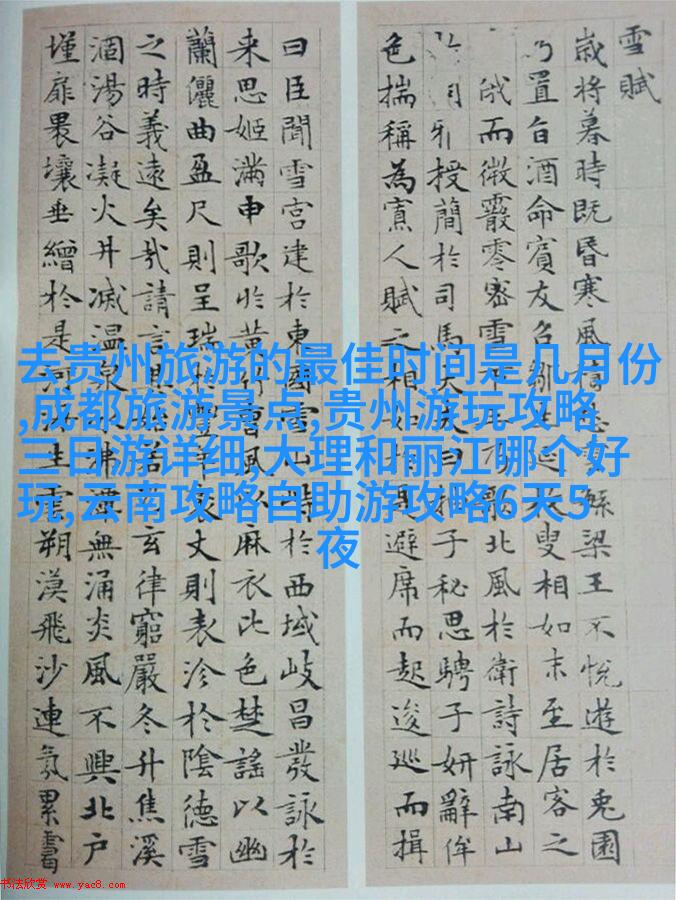 雪賦
歲將暮時既昏寒風積雲梁王不悅遊於兔園
乃置旨酒命賓友召鄒生延枚叟相如末至居客之
俄而微霰零密雪下王乃歌北風於衛詩詠南山
周雅授簡於司馬大夫曰抽子秘思騁子妍辭侔
色揣稱為寡人賦之相如於是避席而起逡巡而揖
曰臣聞雪宮建於東國雪山峙於西域岐昌發詠於
来思姬滿申歌於黃竹曹風以麻衣比色楚謠以幽
蘭儷曲盈尺則呈瑞於豐年袤丈則表沴於陰德雪
之時義遠矣哉請言其始若玄律窮嚴冬升焦溪
涸湯谷凝火井滅溫泉冰沸潭無涌炎風不興北户
墐扉壤垂繒於是河海生雲朔漠飛沙連氛累靄
去贵州旅游的最佳时间是几月份
,成都旅游景点,贵州游玩攻略
三日游详细,大理和丽江哪个好
玩,云南攻略自助游攻略6天5
夜
书法欣赏 www.yac8.com